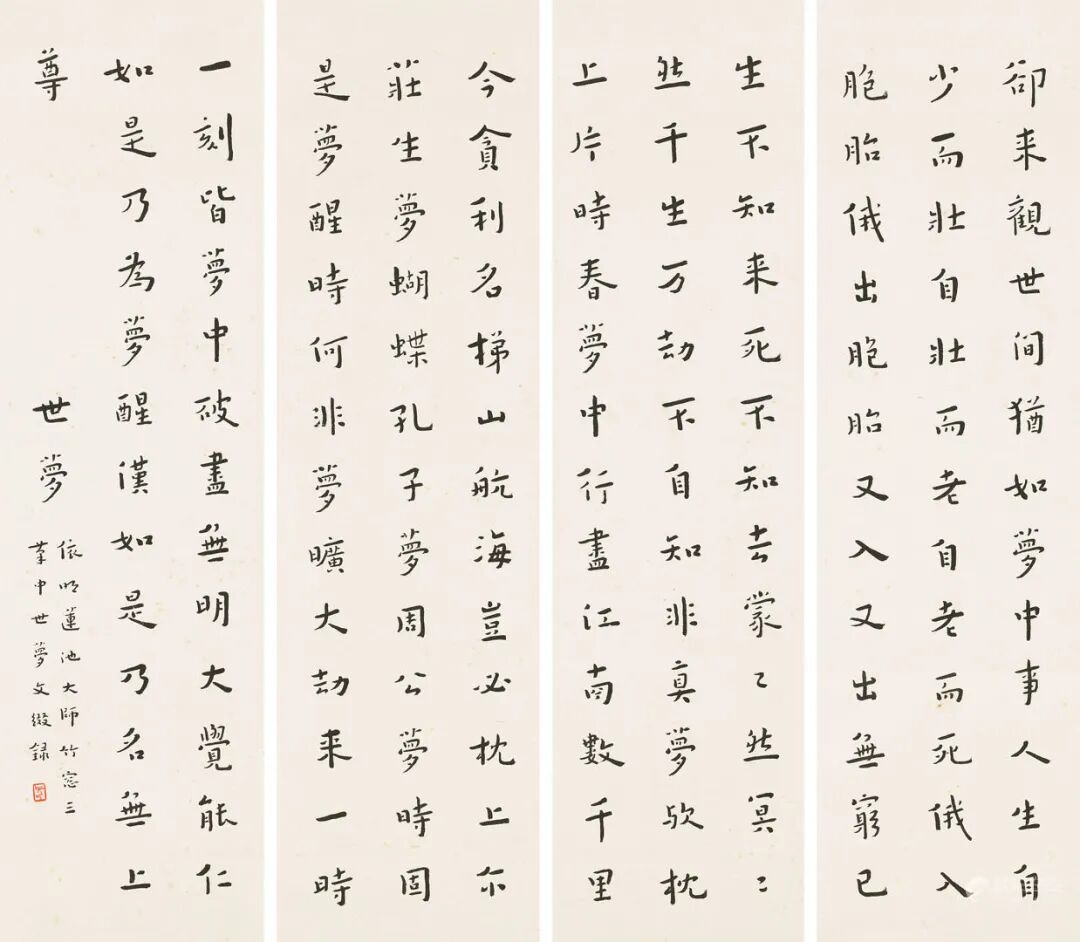 卻来觀世間猶如夢中事人生自
少而壯自壯而老自老而死俄入
胞胎俄出胞胎又入又出無窮已
生不知来死不知去蒙〻然冥〻
然千生万劫不自知非真夢欤枕
上片時春夢中行盡江南數千里
今貪利名梯山航海豈必枕上尔
莊生夢蝴蝶孔子夢周公夢時固
是夢醒時何非夢曠大劫来一時
一刻皆夢中破盡無明大覺能仁
如是乃為夢醒漢如是乃名無上
尊 世夢
依明蓮池大師竹窓三
筆中世夢文綴録